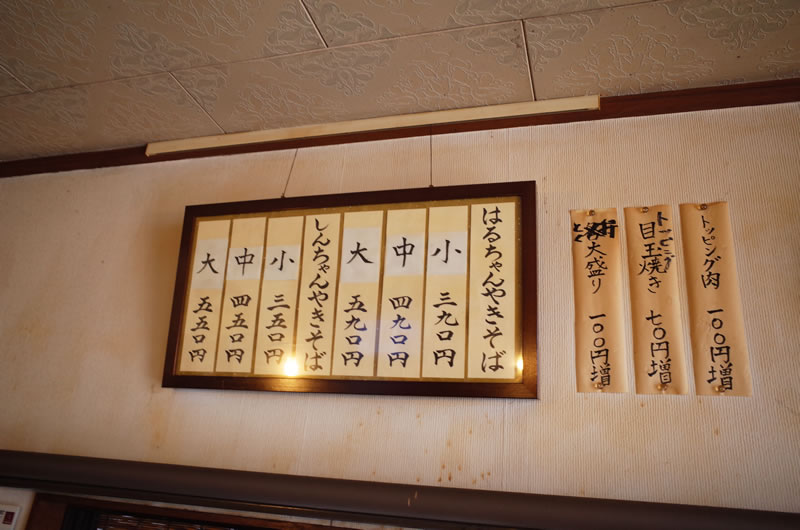 トッピング肉 一〇〇円増
トッピング
目玉焼き 七〇円増
大盛り 一〇〇円増
はるちゃんやきそば
小 三九〇円
中 四九〇円
大 五九〇円
しんちゃんやきそば
小 三五〇円
中 四五〇円
大 五五〇円